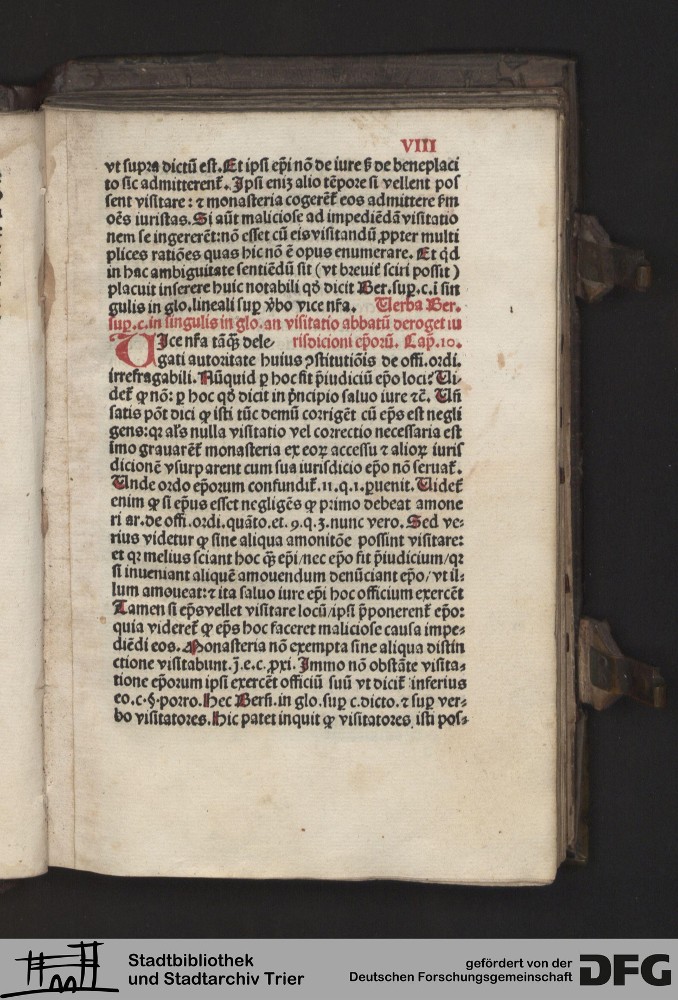 VIII
vt supra dictū est. Et ipsi ep̄i nō de iure ß de beneplaci
to sic admitterenꝶ. Ipsi eniꝫ alio tēpore si vellent pos
sent visitare: ⁊ monasteria cogerēꝶ eos admittere ẜm
oēs iuristas. Si aūt maliciose ad impediēdā visitatio
nem se ingererēt: nō esset cū eis visitandū ꝓpter multi
plices ratiōes quas hic nō ē opus enumerare. Et qd̄
in hac ambiguitate sentiēdū sit (vt breuiꝶ sciri possit)
placuit inserere huic notabili qḋ dicit Ber. suꝑ. c. ī sin
gulis in glo. lineali suꝑ v̇bo vice nr̄a. Uerba Ber.
suꝑ. c. in singulis in glo. an visitatio abbatū deroget iu
UIce nr̄a tāq̄ꝫ dele⸗ risdicioni ep̄orū. Caꝑ. 10.
gati autoritate huius ꝯstitutiōis de offi. ordi.
irrefragabili. Nūquid ꝑ hoc fit p̄iudiciū ep̄o loci? Ui⸗
deꝶ ꝙ nō: ꝑ hoc qḋ dicit in pͥncipio saluo iure ⁊c̄. Uñ
satis pōt dici ꝙ isti tūc demū corrigēt cū ep̄s est negli
gens: qꝛ al's nulla visitatio vel correctio necessaria est
īmo grauarēꝶ monasteria ex eoꝝ accessu ⁊ alioꝝ iuris
dicionē vsurparent cum sua iurisdicio ep̄o nō seruaꝶ.
Unde ordo ep̄orum confundiꝶ. 11. q. 1. ꝑuenit. Uideꝶ
enim ꝙ si ep̄us esset negligēs ꝙ primo debeat amone
ri ar. de offi. ordi. quāto. et. 9. q. 3. nunc vero. Sed ve⸗
rius videtur ꝙ sine aliqua amonitōe possint visitare:
et qꝛ melius sciant hoc q̄ꝫ ep̄i/nec ep̄o fit p̄iudicium/qꝛ
si inueniant aliquē amouendum denūciant ep̄o/vt il⸗
lum amoueat: ⁊ ita saluo iure ep̄i hoc officium exercēt
Tamen si ep̄s vellet visitare locū/ipsi p̄ponerenꝶ ep̄o:
quia videreꝶ ꝙ ep̄s hoc faceret maliciose causa impe⸗
diēdi eos. Monasteria nō exempta sine aliqua distin
ctione visitabunt. j̄. e. c. ꝓxi. Immo nō obstāte visita⸗
tione ep̄orum ipsi exercēt officiū suū vt diciꝶ inferius
eo. c. §. porro. Hec Berñ. in glo. suꝑ c. dicto. ⁊ suꝑ ver⸗
bo visitatores. Hic patet inquit ꝙ visitatores isti pos⸗
Stadtbibliothek
und Stadtarchiv Trier
gefördert von der
Deutschen Forschungsgemeinschaft
DFG